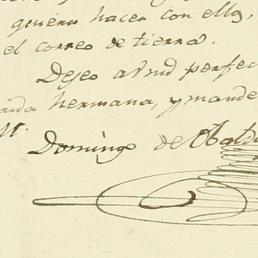 hacer con ello,
el correo de tierra.
Deseo a Vmd perfec
rida hermana, y mande
Domingo de Obaldi